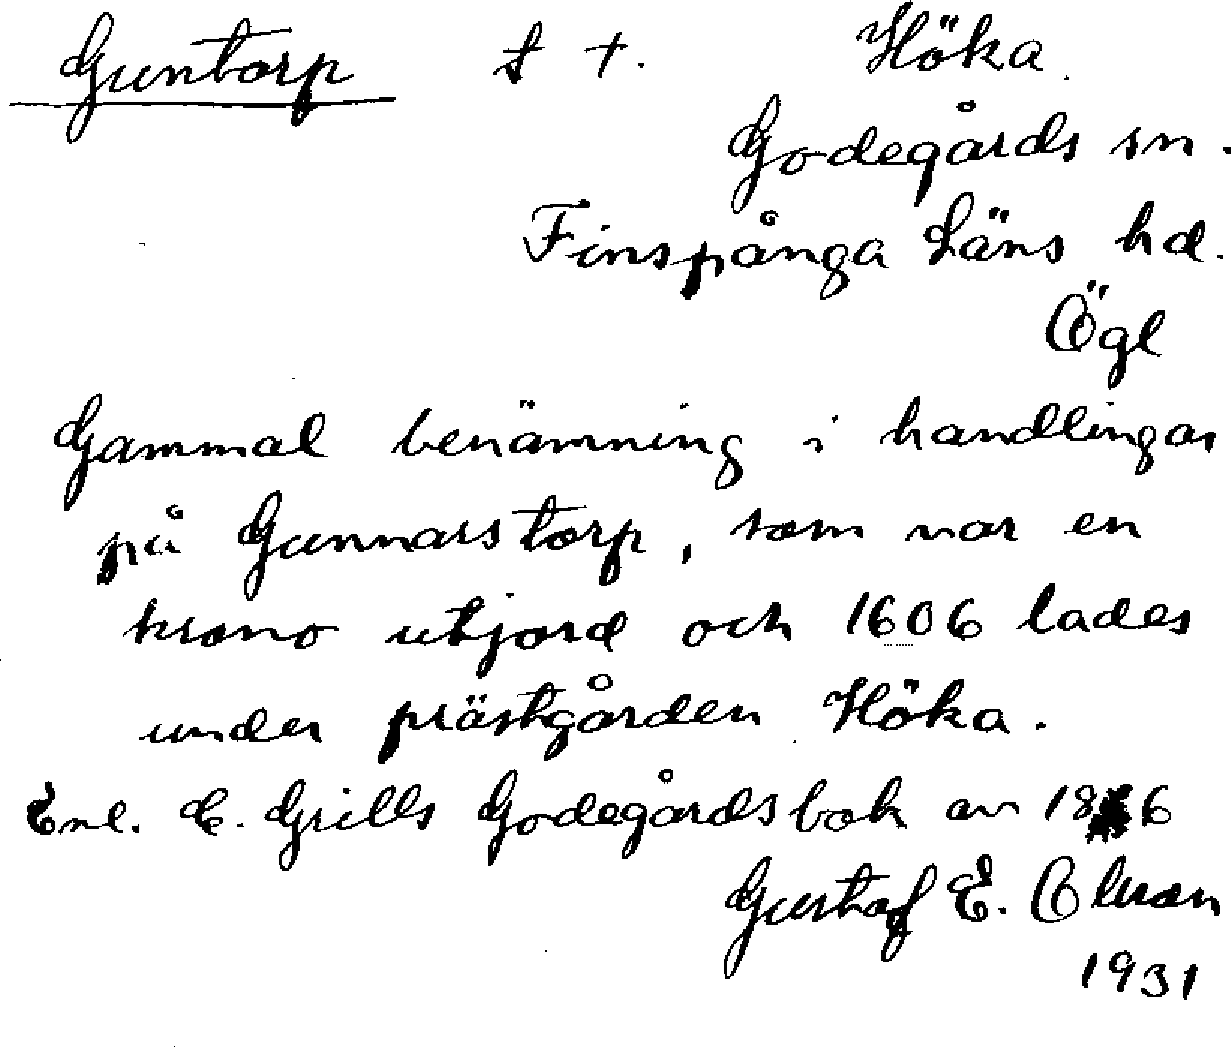 Guntorp t +. Höka.
Godegårds sn.
Finspånga Läns hd.
Ögl
Gammal benämning i handlingar
på Gunnarstorp, som var en
krono utjord och 1606 lades
under prästgården Höka.
Enl. C. Grills Godegårdsbok av
Gustaf E.
1931